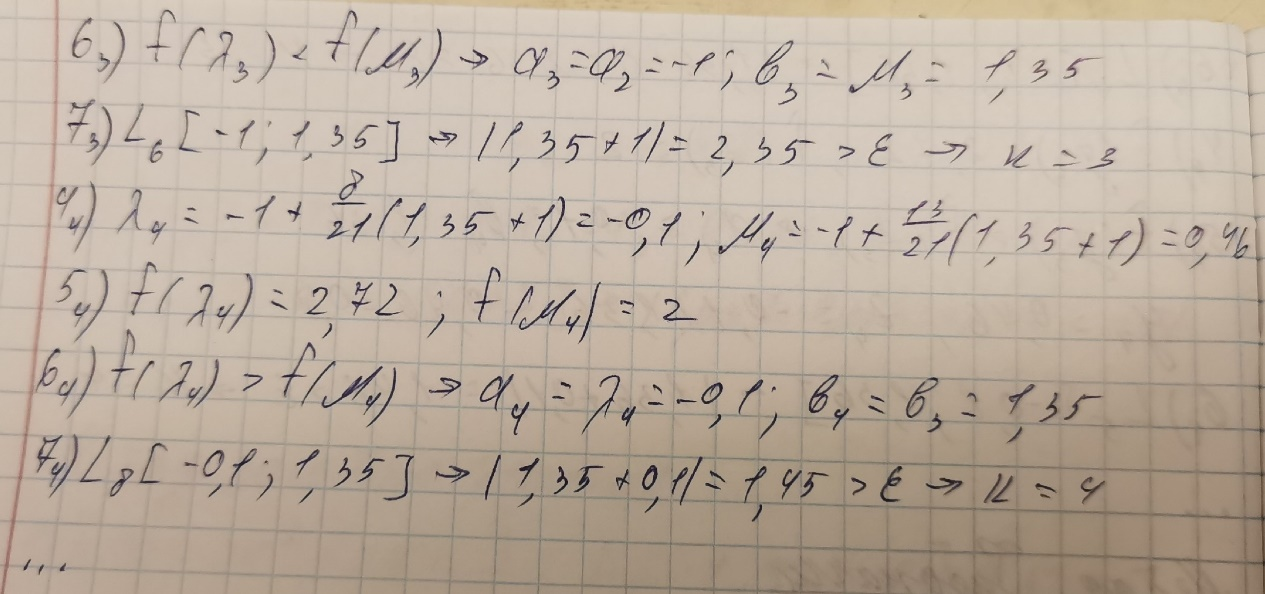 6₃) f(λ₃) < f(μ₃) → a₃ = a₂ = -1; b₃ = μ₃ = 1,35
7₃) L₆ [-1; 1,35] → |1,35+1| = 2,35 > ε → k = 3
4₄) λ₄ = -1 + 8/21 (1,35+1) = -0,1; μ₄ = -1 + 13/21 (1,35+1) = 0,46
5₄) f(λ₄) = 2,72; f(μ₄) = 2
6₄) f(λ₄) > f(μ₄) → a₄ = λ₄ = -0,1; b₄ = b₃ = 1,35
7₄) L₈ [-0,1; 1,35] → |1,35+0,1| = 1,45 > ε → k = 4
...